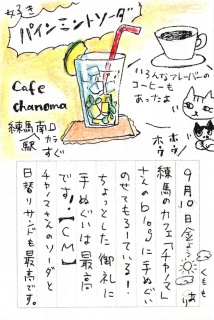 好き
パインミントソーダ
cafe
chanoma
練馬南口
駅 からすぐ
いろんなフレーバーの
コーヒーも
あったよ
ホッ
ホッ
9月10日金
くもも
あり
練馬のカフェ「チャノマ」
さんのblogに手ぬぐい
のせてもろーている!
ちょっとした御礼に
手ぬぐいは最高
です!【CM】
チャノマさんのソーダと
日替りサンドも最高です。